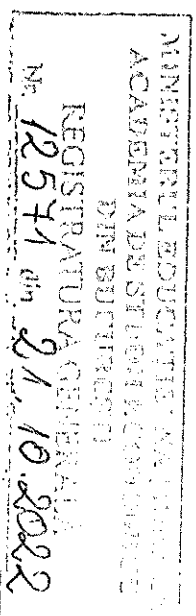 MINISTERUL EDUCAȚIEI
ACADEMIA DE STUDII ECONOMICE
DIN BUCUREȘTI
REGISTRATURA GENERALĂ
Nr. 12571 din 21.10.2022